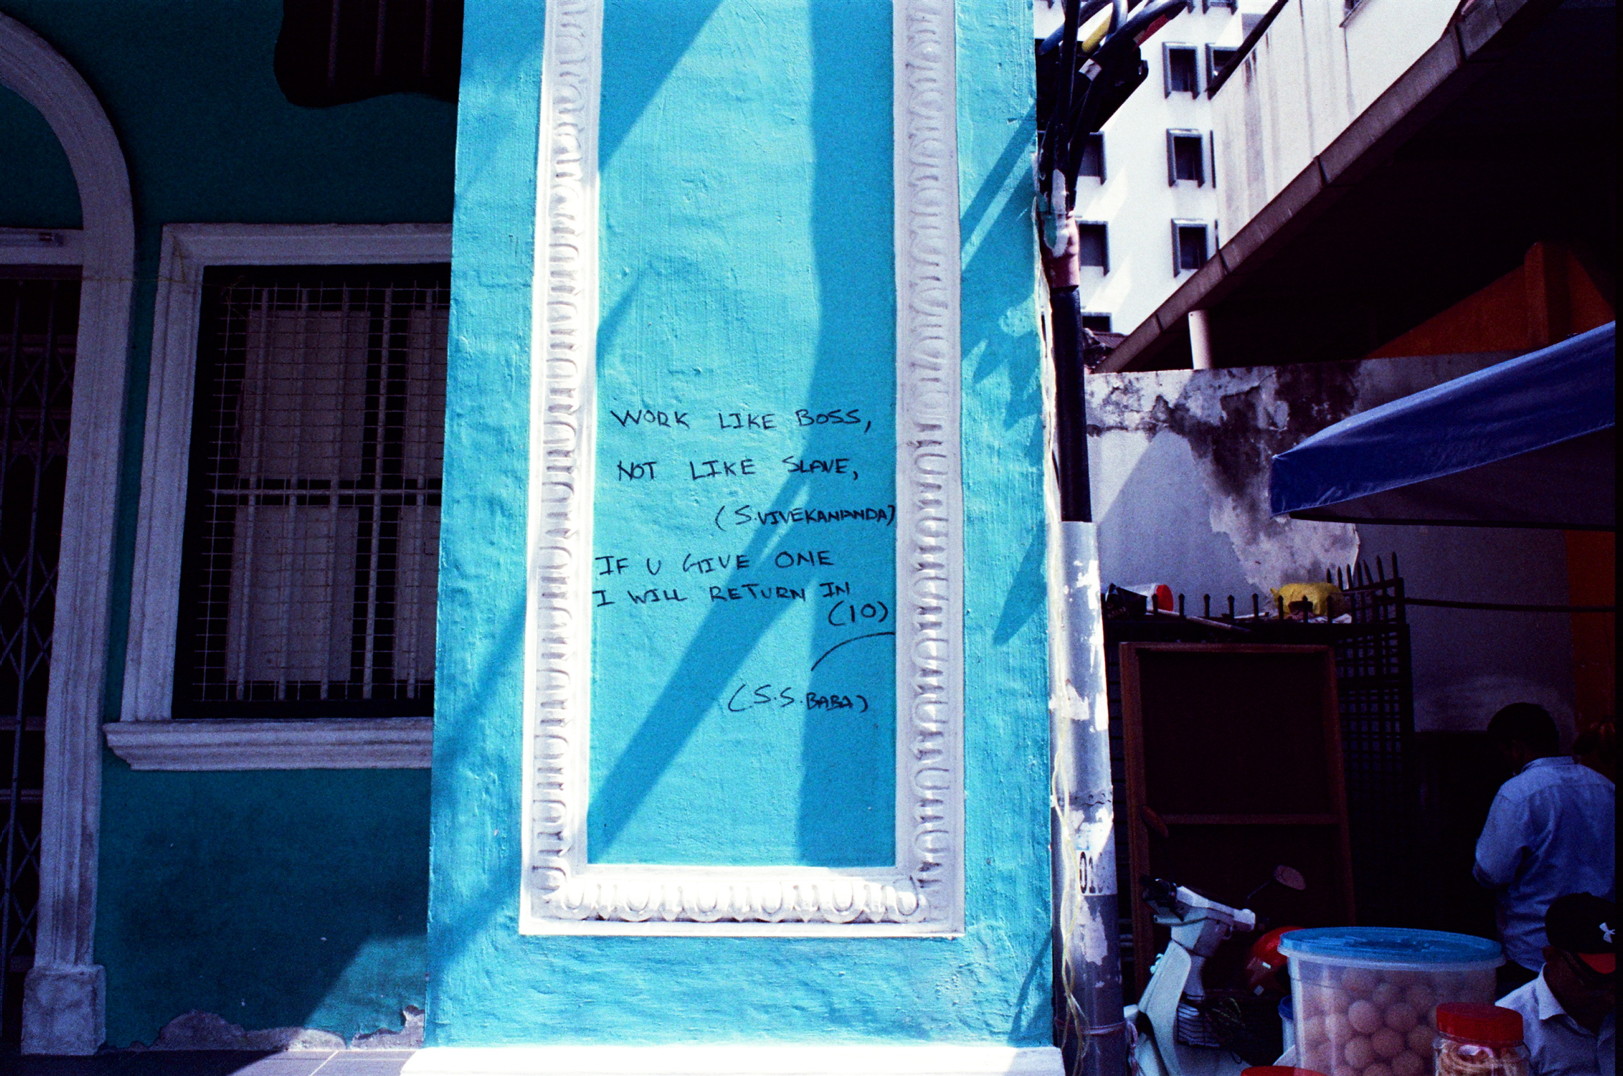 WORK LIKE BOSS,
NOT LIKE SLAVE,
(S.VIVEKANANDA)
IF U GIVE ONE
I WILL RETURN IN
(10)
(S.S.BABA)